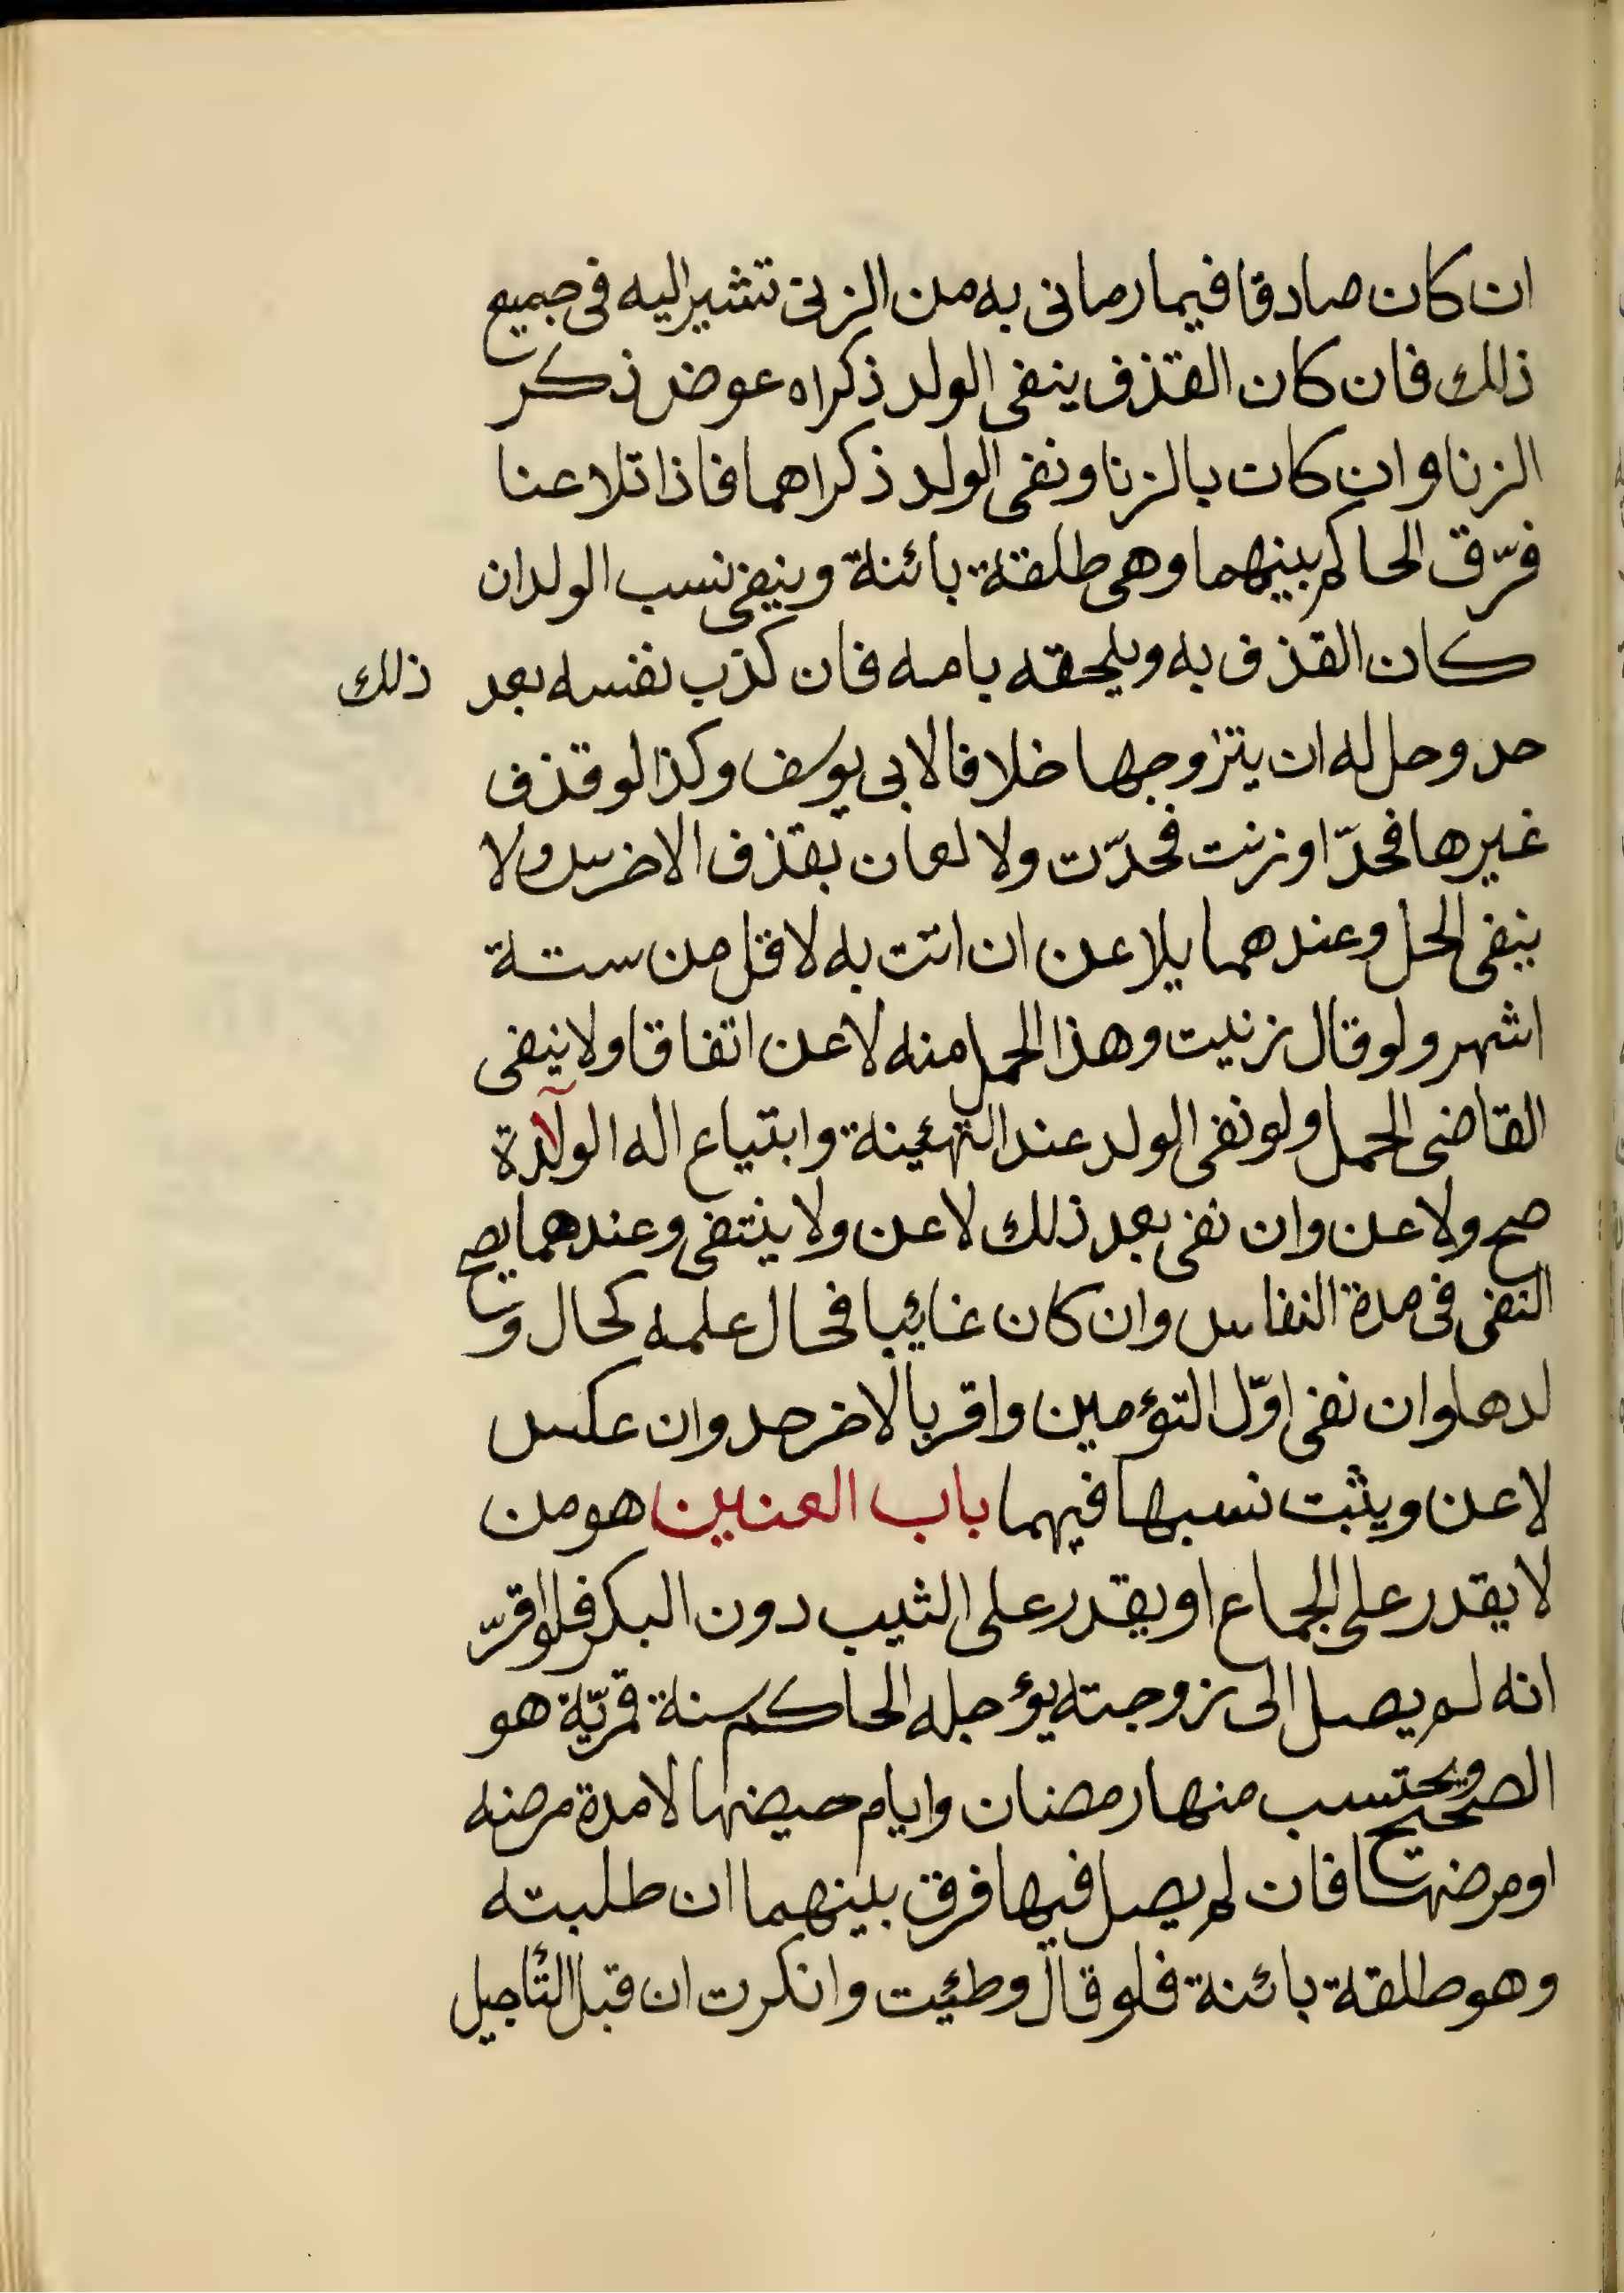 ان كان صادقا فيما رمانى به من الزنى تشير اليه فى جميع
ذلك فان كان القذف ينفى الولد ذكراه عوض ذكر
الزنا وان كان بالزنا ونفى الولد ذكراهما فاذا تلاعنا
فرّق الحاكم بينهما وهى طلقة بائنة وينفى نسب الولد ان
كان القذف به ويلحقه بامه فان كذب نفسه بعد ذلك
حد وحل له ان يتزوجها خلافا لابى يوسف وكذا لو قذف
غيرها فحدّ او زنت فحدّت ولا لعان بقذف الاخرس ولا
بنفى الحل وعندهما يلاعن ان اتت به لاقل من ستة
اشهر ولو قال زنيت وهذا الحمل منه لاعن اتفاقا ولا ينفى
القاضى الحمل ولو نفى الولد عند التهئينة وابتياع اله الولآدة
صح ولاعن وان نفى بعد ذلك لاعن ولا ينتفى وعندهما يصح
النفى فى مدة النفاس وان كان غائبا فحال علمه كحال و
لدها وان نفى اوّل التوءمين واقر بالاخر حد وان عكس
لاعن ويثبت نسبها فيهما باب العنين هو من
لا يقدر على الجماع او يقدر على الثيب دون البكر فلو اقرّ
انه لم يصل الى زوجته يؤجله الحاكم سنة قمريّة هو
الصحيح ويحتسب منها رمضان وايام حيضها لا مدة مرضه
او مرضها فان لم يصل فيها فرق بينهما ان طلبته
وهو طلقة بائنة فلو قال وطئيت وانكرت ان قبل التأجيل